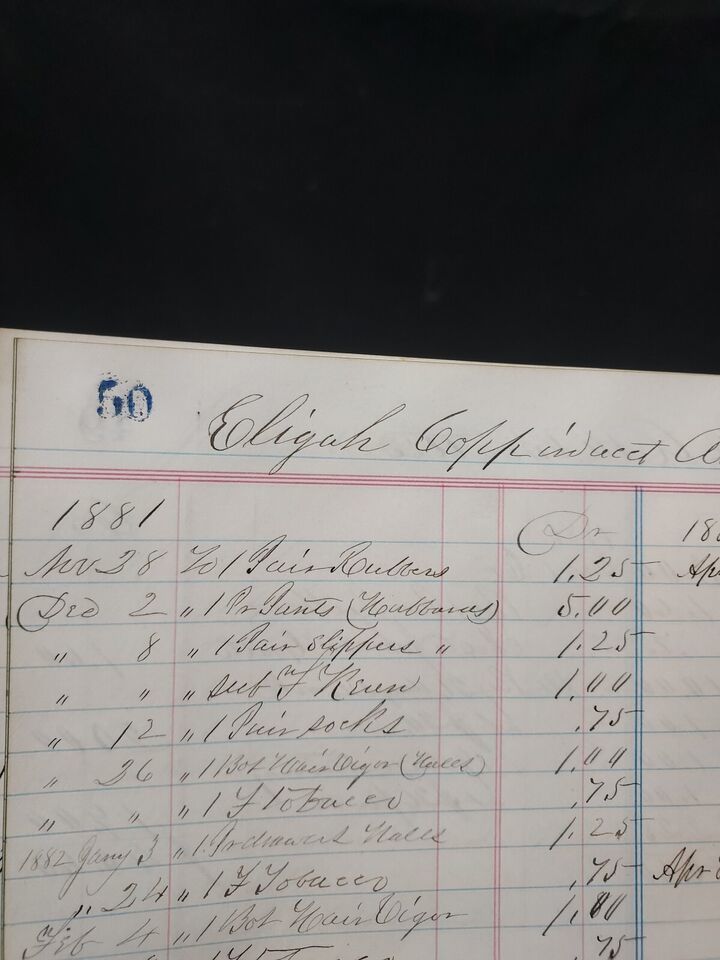 50
Elijah Copp in acct
1881 Dr 18
Nov 28 To 1 Pair Rubbers 1.25 Apr
Dec 2 " 1 Pr Pants (Hubbards) 5.00
" 8 " 1 Pair Slippers " 1.25
" " " sub F Keen 1.00
" 12 " 1 Pair socks .75
" 26 " 1 Bot Hair Vigor (Hales) 1.00
" " " 1 F Tobacco .75
1882 Jany 3 " 1 Pr drawers Hales 1.25
" 24 " 1 F Tobacco .75 Apr
Feb 4 " 1 Bot Hair Vigor 1.00
.75